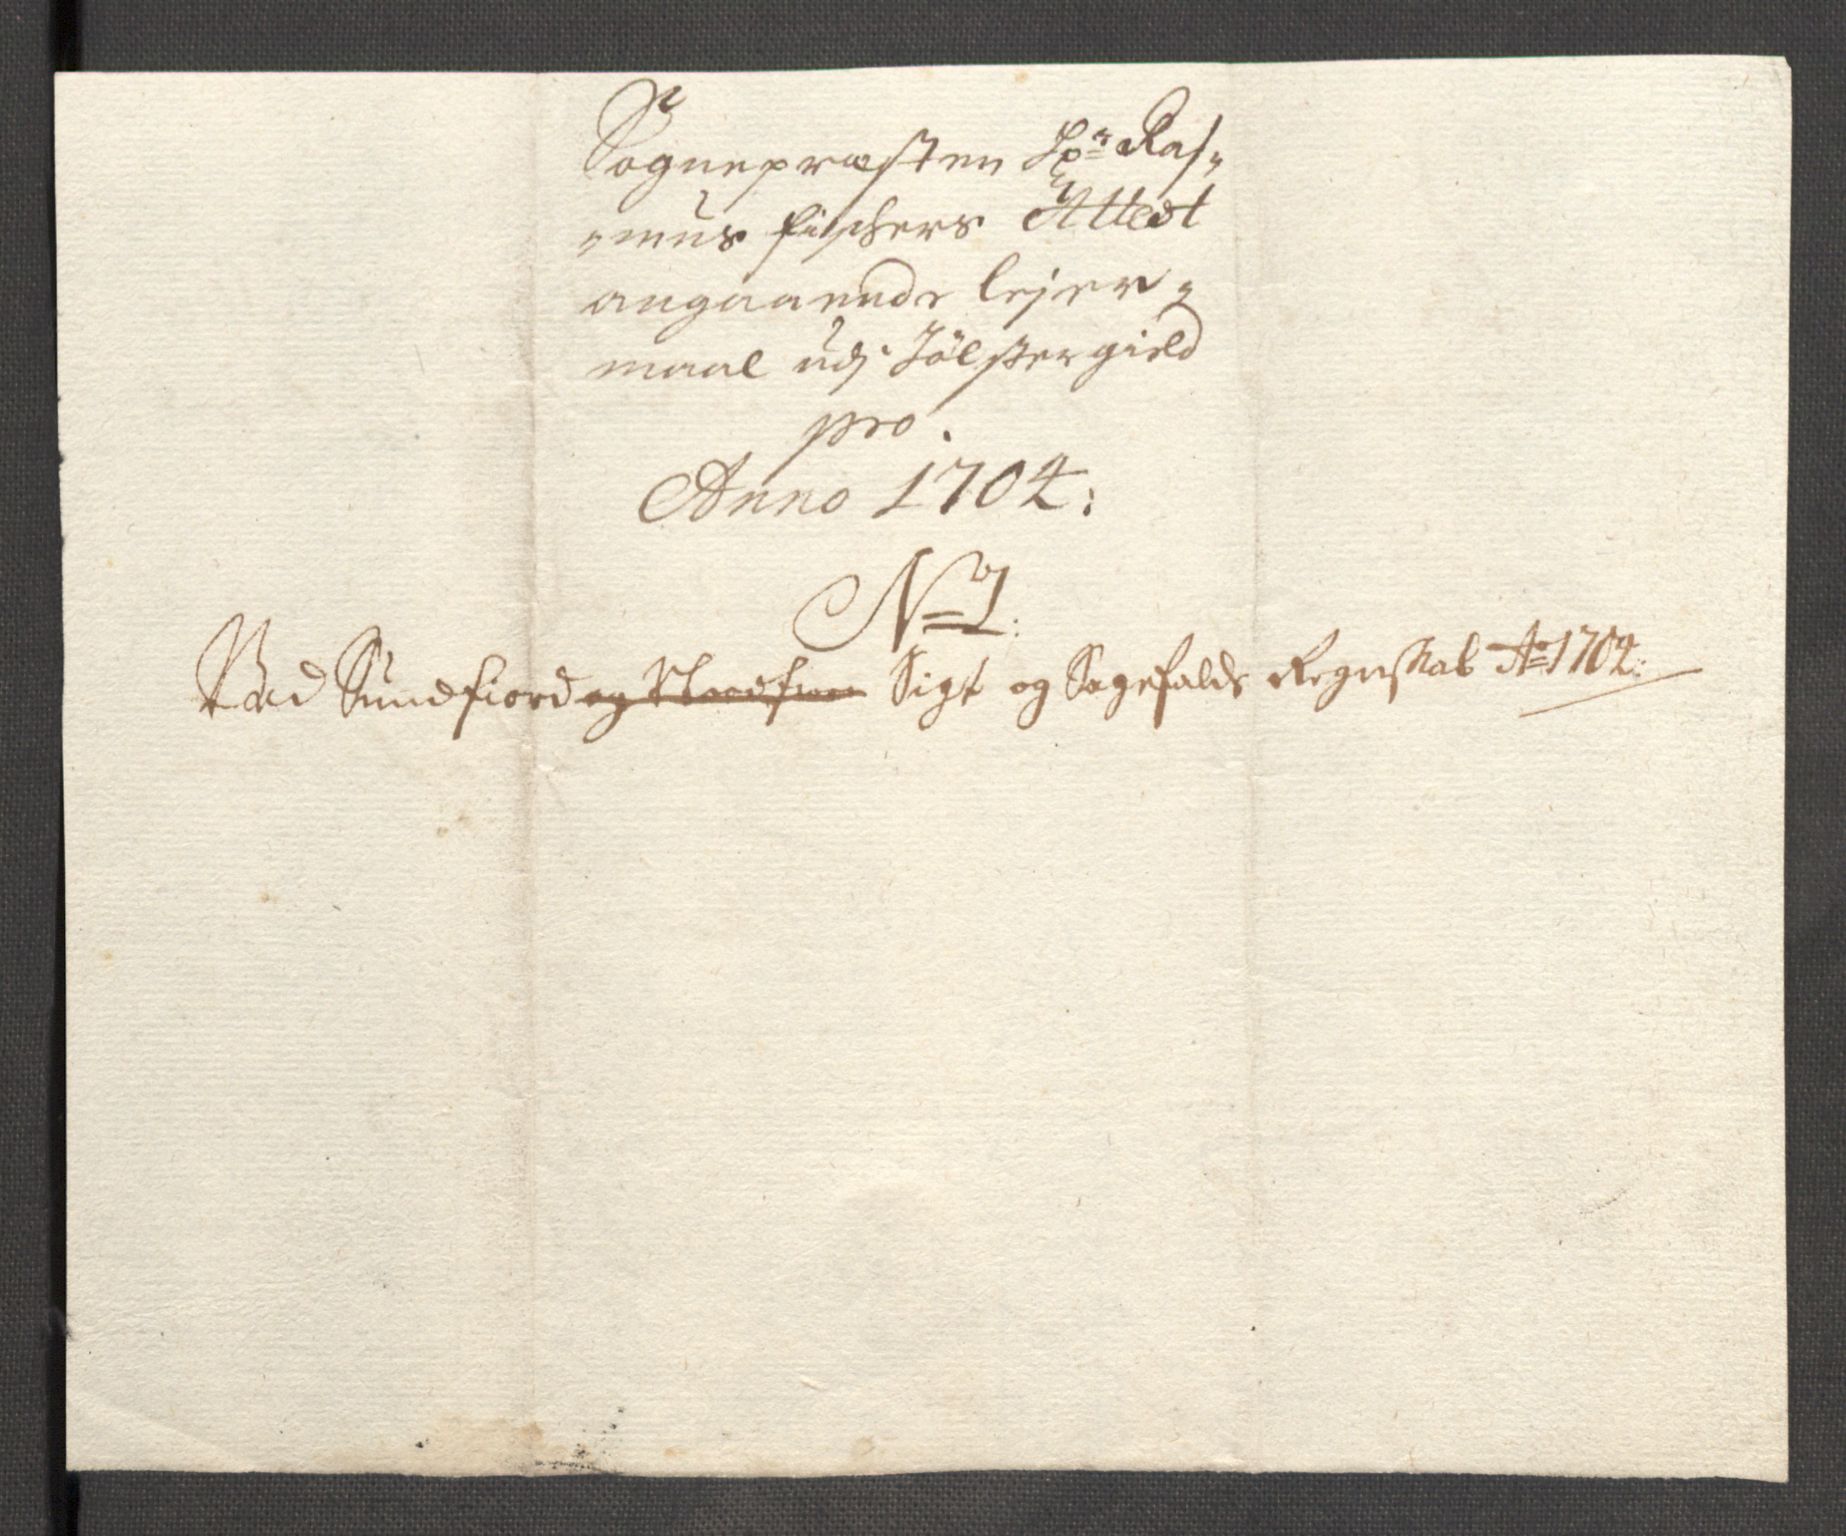 Sognepræsten Hr Ras=
=mus fischers Attest
angaaende lejer=
maal udj Jölster gield
pro.
Anno 1704:
No 1:
Ved Sundfiord og Nordfior Sigt og Sagefalds Regnskab Ao 1704: